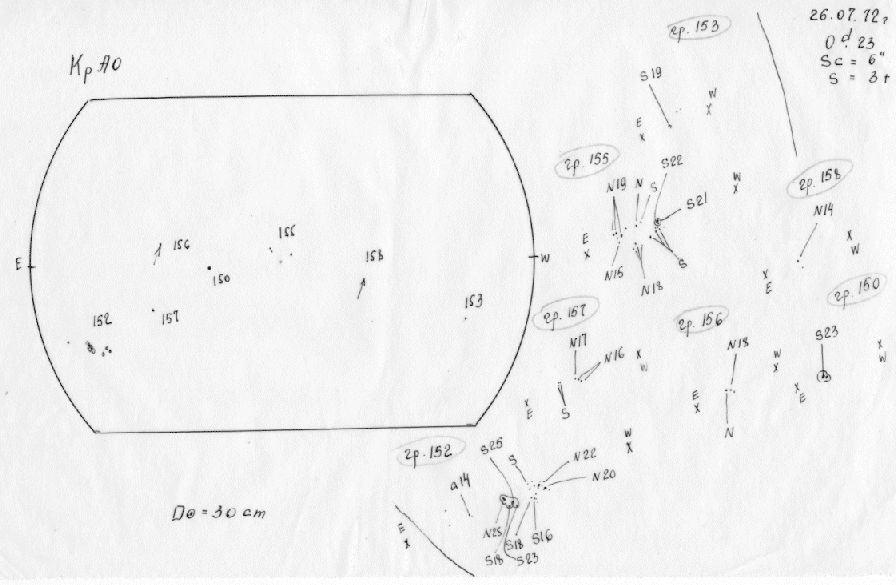 КрАО
26.07.72г
0ᵈ.23
Sc = 6"
S = 3т
E
W
156
155
150
158
157
153
152
D⊙ = 30 cm
гр. 153
S19
E
x
W
x
гр. 155
N19
N
S
S22
S21
W
x
E
x
N15
N18
S
гр. 158
N14
x
W
x
E
гр. 157
N17
N16
x
W
x
E
S
гр. 156
N18
W
x
E
x
N
гр. 150
S23
x
W
x
E
гр. 152
S25
S
N22
N20
W
x
a14
E
x
N25
S18
S18
S16
S23